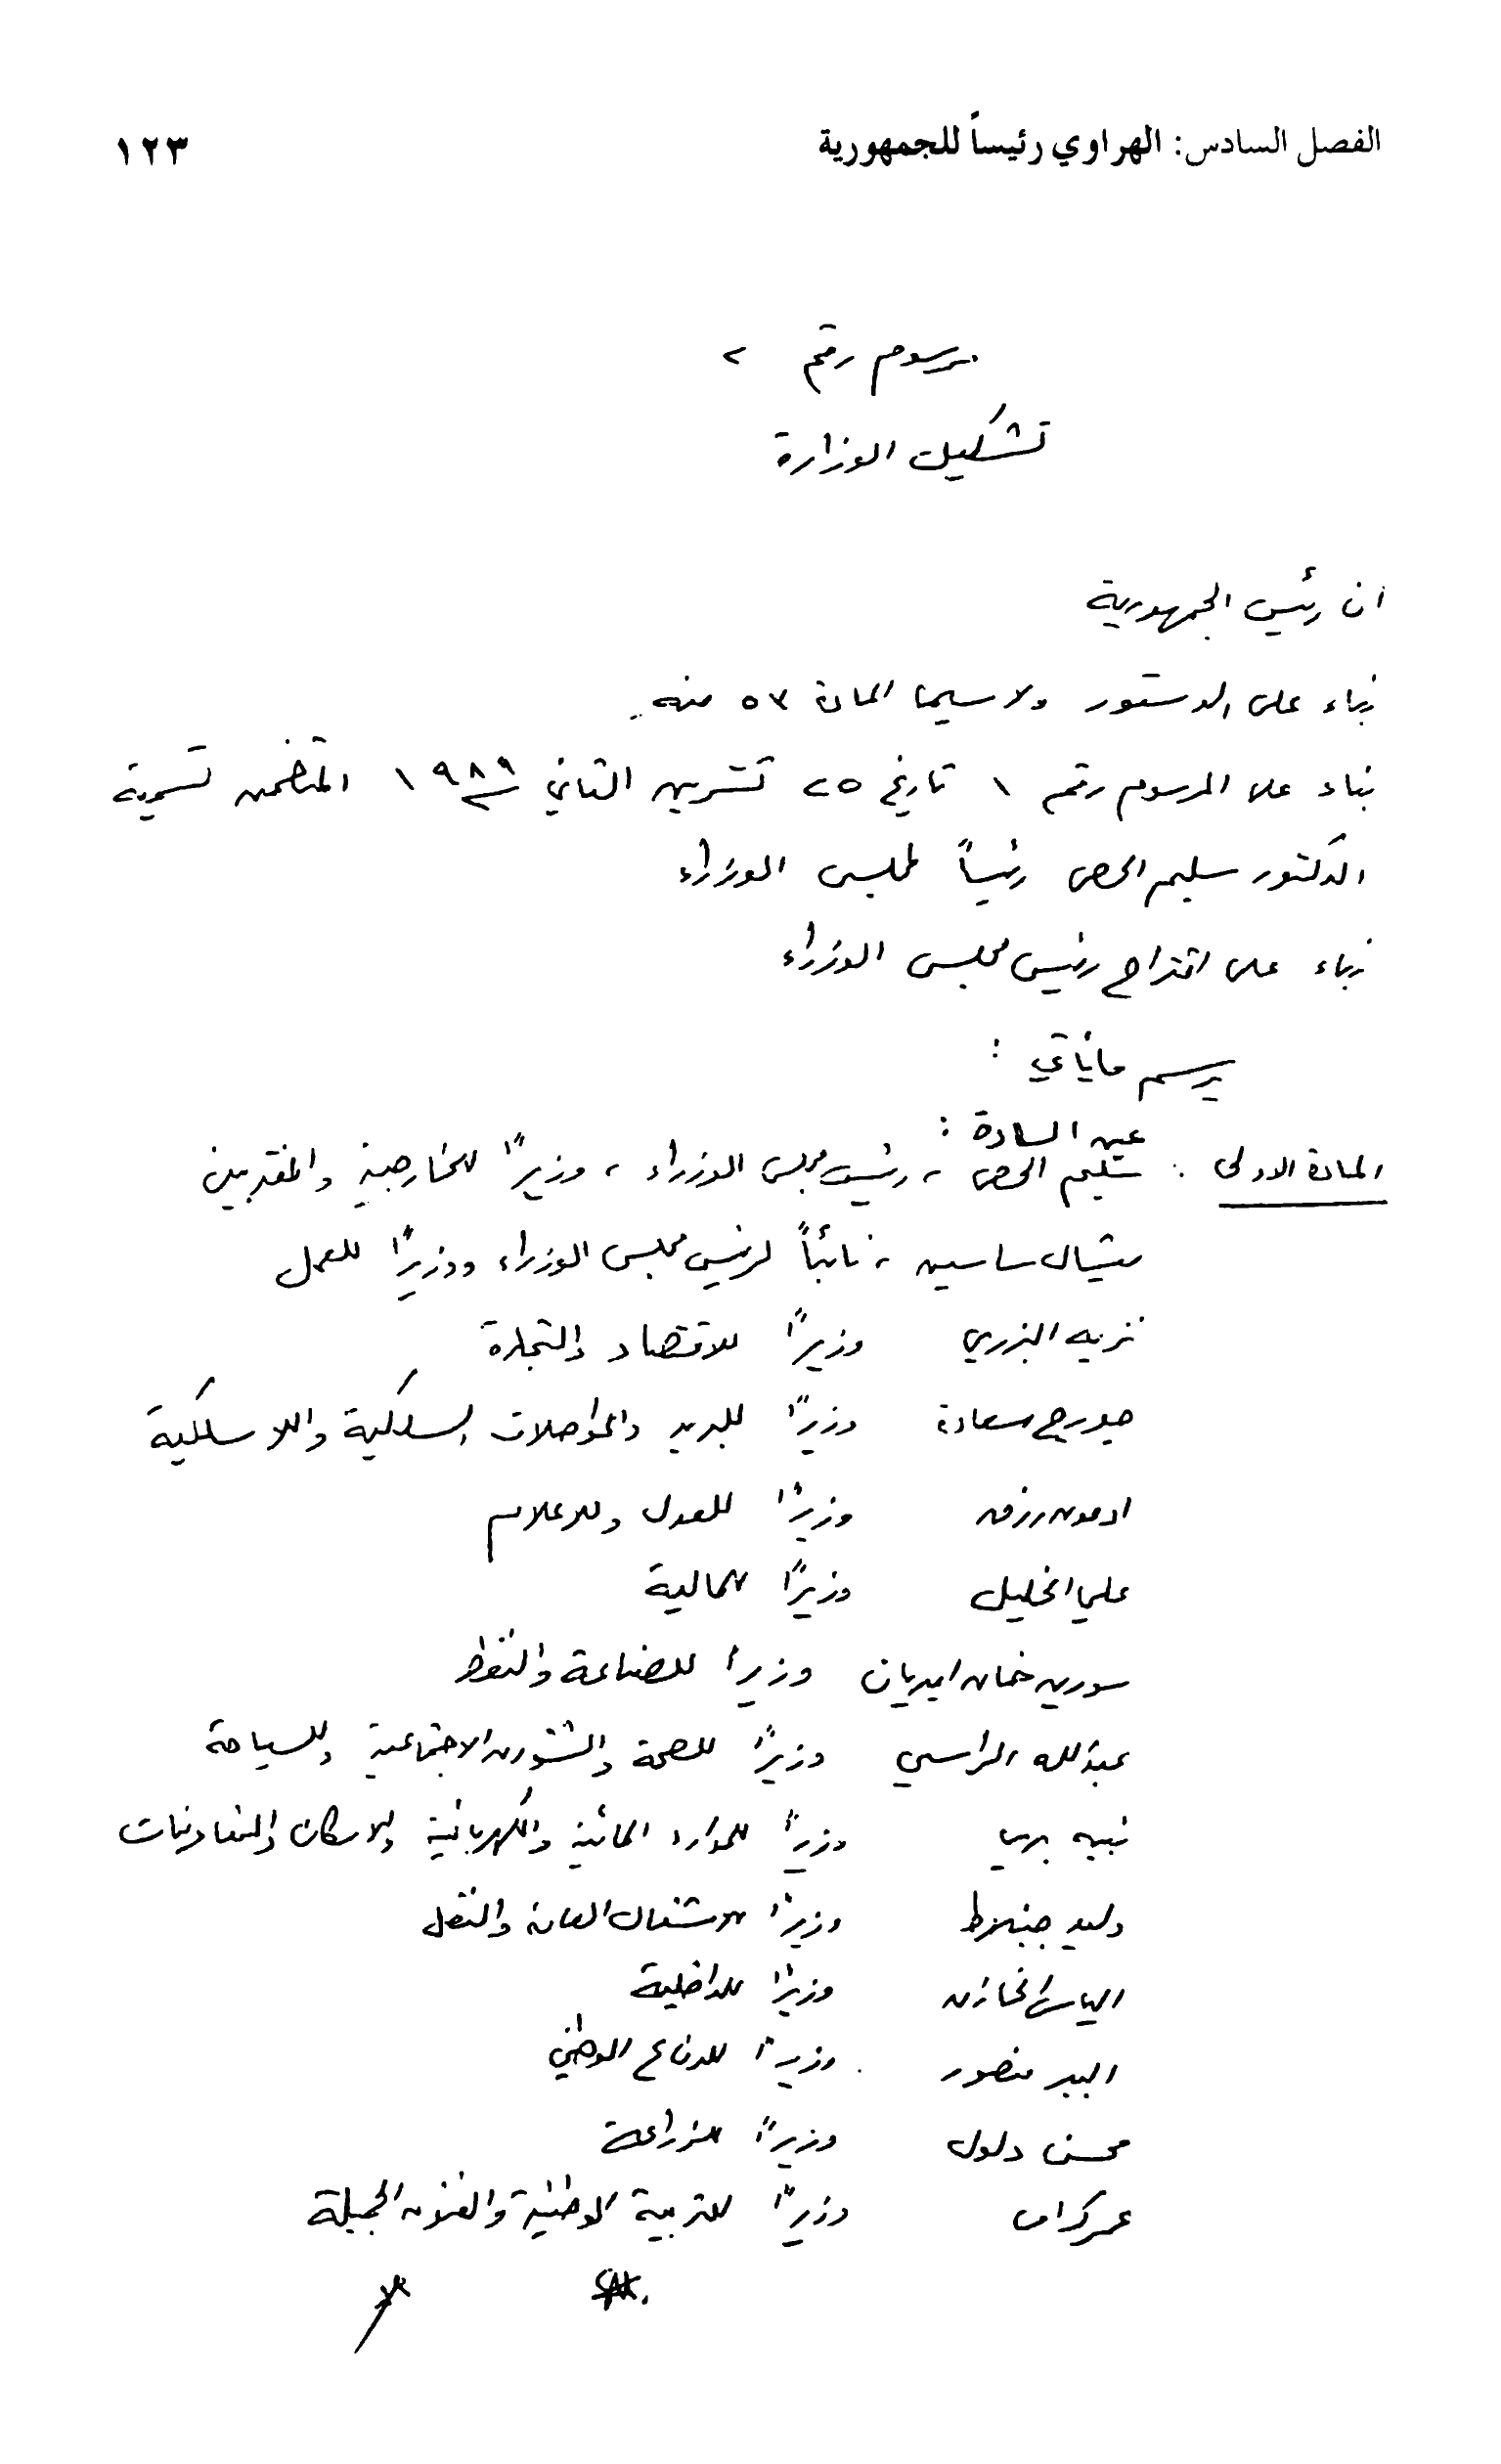 الفصل السادس: الهراوي رئيساً للجمهورية
١٢٣
مرسوم رقم ٢
تشكيل الوزارة
ان رئيس الجمهورية
بناء على الدستور ولا سيما المادة ٥٣ منه
بناء على المرسوم رقم ١ تاريخ ٢٥ تشرين الثاني ١٩٨٩ المتضمن تسمية
الدكتور سليم الحص رئيساً لمجلس الوزراء
بناء على اقتراح رئيس مجلس الوزراء
يرسم ما يأتي :
عين السادة :
المادة الاولى : سليم الحص ، رئيس مجلس الوزراء ، وزيراً للخارجية والمغتربين
ميشال ساسين ، نائباً لرئيس مجلس الوزراء ووزيراً للعمل
نزيه البزري وزيراً للاقتصاد والتجارة
جورج سعادة وزيراً للبريد والمواصلات السلكية واللاسلكية
ادمون رزق وزيراً للعدل وللاعلام
علي الخليل وزيراً للمالية
سورين خان اميريان وزيراً للصناعة والنفط
عبدالله الراسي وزيراً للصحة والشؤون الاجتماعية وللسياحة
نبيه بري وزيراً للموارد المائية والكهربائية والاسكان والتعاونيات
وليد جنبلاط وزيراً للاشغال العامة والنقل
الياس الخازن وزيراً للداخلية
البير منصور وزيراً للدفاع الوطني
محسن دلول وزيراً للزراعة
عمر كرامي وزيراً للتربية الوطنية والفنون الجميلة